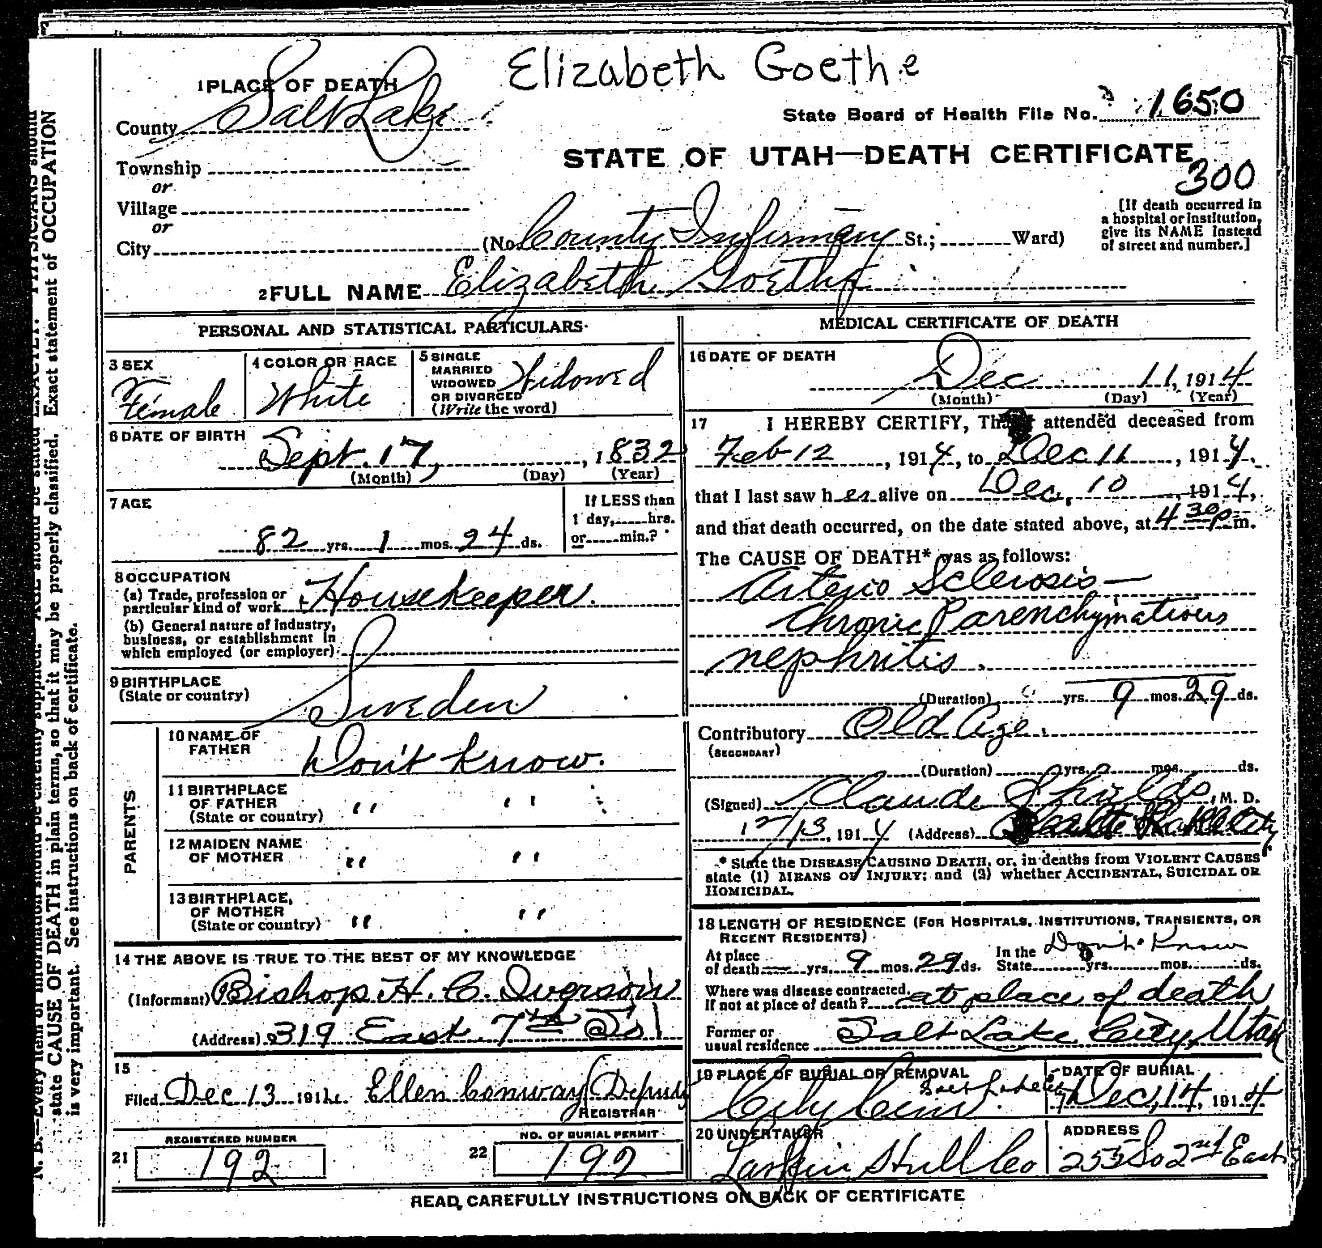 Elizabeth Goethe
1 PLACE OF DEATH
County Salt Lake
State Board of Health File No. 1650
STATE OF UTAH—DEATH CERTIFICATE
300
Township
or
Village
or
City (No. County Infirmary St.; Ward)
[If death occurred in
a hospital or institution,
give its NAME instead
of street and number.]
2 FULL NAME Elizabeth Goethe
PERSONAL AND STATISTICAL PARTICULARS
3 SEX
Female
4 COLOR OR RACE
White
5 SINGLE
MARRIED
WIDOWED
OR DIVORCED
(Write the word)
Widowed
6 DATE OF BIRTH
Sept. 17, , 1832
(Month) (Day) (Year)
7 AGE
82 yrs. 1 mos. 24 ds.
If LESS than
1 day,.....hrs.
or.....min.?
8 OCCUPATION
(a) Trade, profession or
particular kind of work Housekeeper.
(b) General nature of industry,
business, or establishment in
which employed (or employer)
9 BIRTHPLACE
(State or country)
Sweden
PARENTS
10 NAME OF
FATHER
Don't know.
11 BIRTHPLACE
OF FATHER
(State or country) " "
12 MAIDEN NAME
OF MOTHER " "
13 BIRTHPLACE,
OF MOTHER
(State or country) " "
14 THE ABOVE IS TRUE TO THE BEST OF MY KNOWLEDGE
(Informant) Bishop H. C. Iverson
(Address) 319 East 7th So
15
Filed Dec 13 1914 Ellen Conway Deputy
REGISTRAR
21 REGISTERED NUMBER
192
22 NO. OF BURIAL PERMIT
192
MEDICAL CERTIFICATE OF DEATH
16 DATE OF DEATH
Dec 11, 1914
(Month) (Day) (Year)
17 I HEREBY CERTIFY, attended deceased from
Feb 12, 1914, to Dec 11, 1914,
that I last saw her alive on Dec, 10 1914,
and that death occurred, on the date stated above, at 4 30 p m.
The CAUSE OF DEATH* was as follows:
Arterio Sclerosis—
Chronic Parenchymatious
nephritis.
(Duration) yrs. 9 mos. 29 ds.
Contributory Old Age.
(SECONDARY)
(Duration) yrs. mos. ds.
(Signed) Claude Shields, M. D.
12/13, 1914 (Address)
* State the DISEASE CAUSING DEATH, or, in deaths from VIOLENT CAUSES
state (1) MEANS OF INJURY; and (2) whether ACCIDENTAL, SUICIDAL OR
HOMICIDAL.
18 LENGTH OF RESIDENCE (FOR HOSPITALS, INSTITUTIONS, TRANSIENTS, OR
RECENT RESIDENTS)
At place
of death — yrs. 9 mos. 29 ds.
In the
State yrs. mos. ds.
Don't Know
Where was disease contracted,
If not at place of death? at place of death
Former or
usual residence Salt Lake City, Utah
19 PLACE OF BURIAL OR REMOVAL
City Cem. Salt Lake City
DATE OF BURIAL
Dec, 14, 1914
20 UNDERTAKER
Larkin Hull Co
ADDRESS
253 So 2nd East
READ CAREFULLY INSTRUCTIONS ON BACK OF CERTIFICATE
N. B.—Every item of information should be carefully supplied. AGE should be stated EXACTLY. PHYSICIANS should
state CAUSE OF DEATH in plain terms, so that it may be properly classified. Exact statement of OCCUPATION
is very important. See instructions on back of certificate.